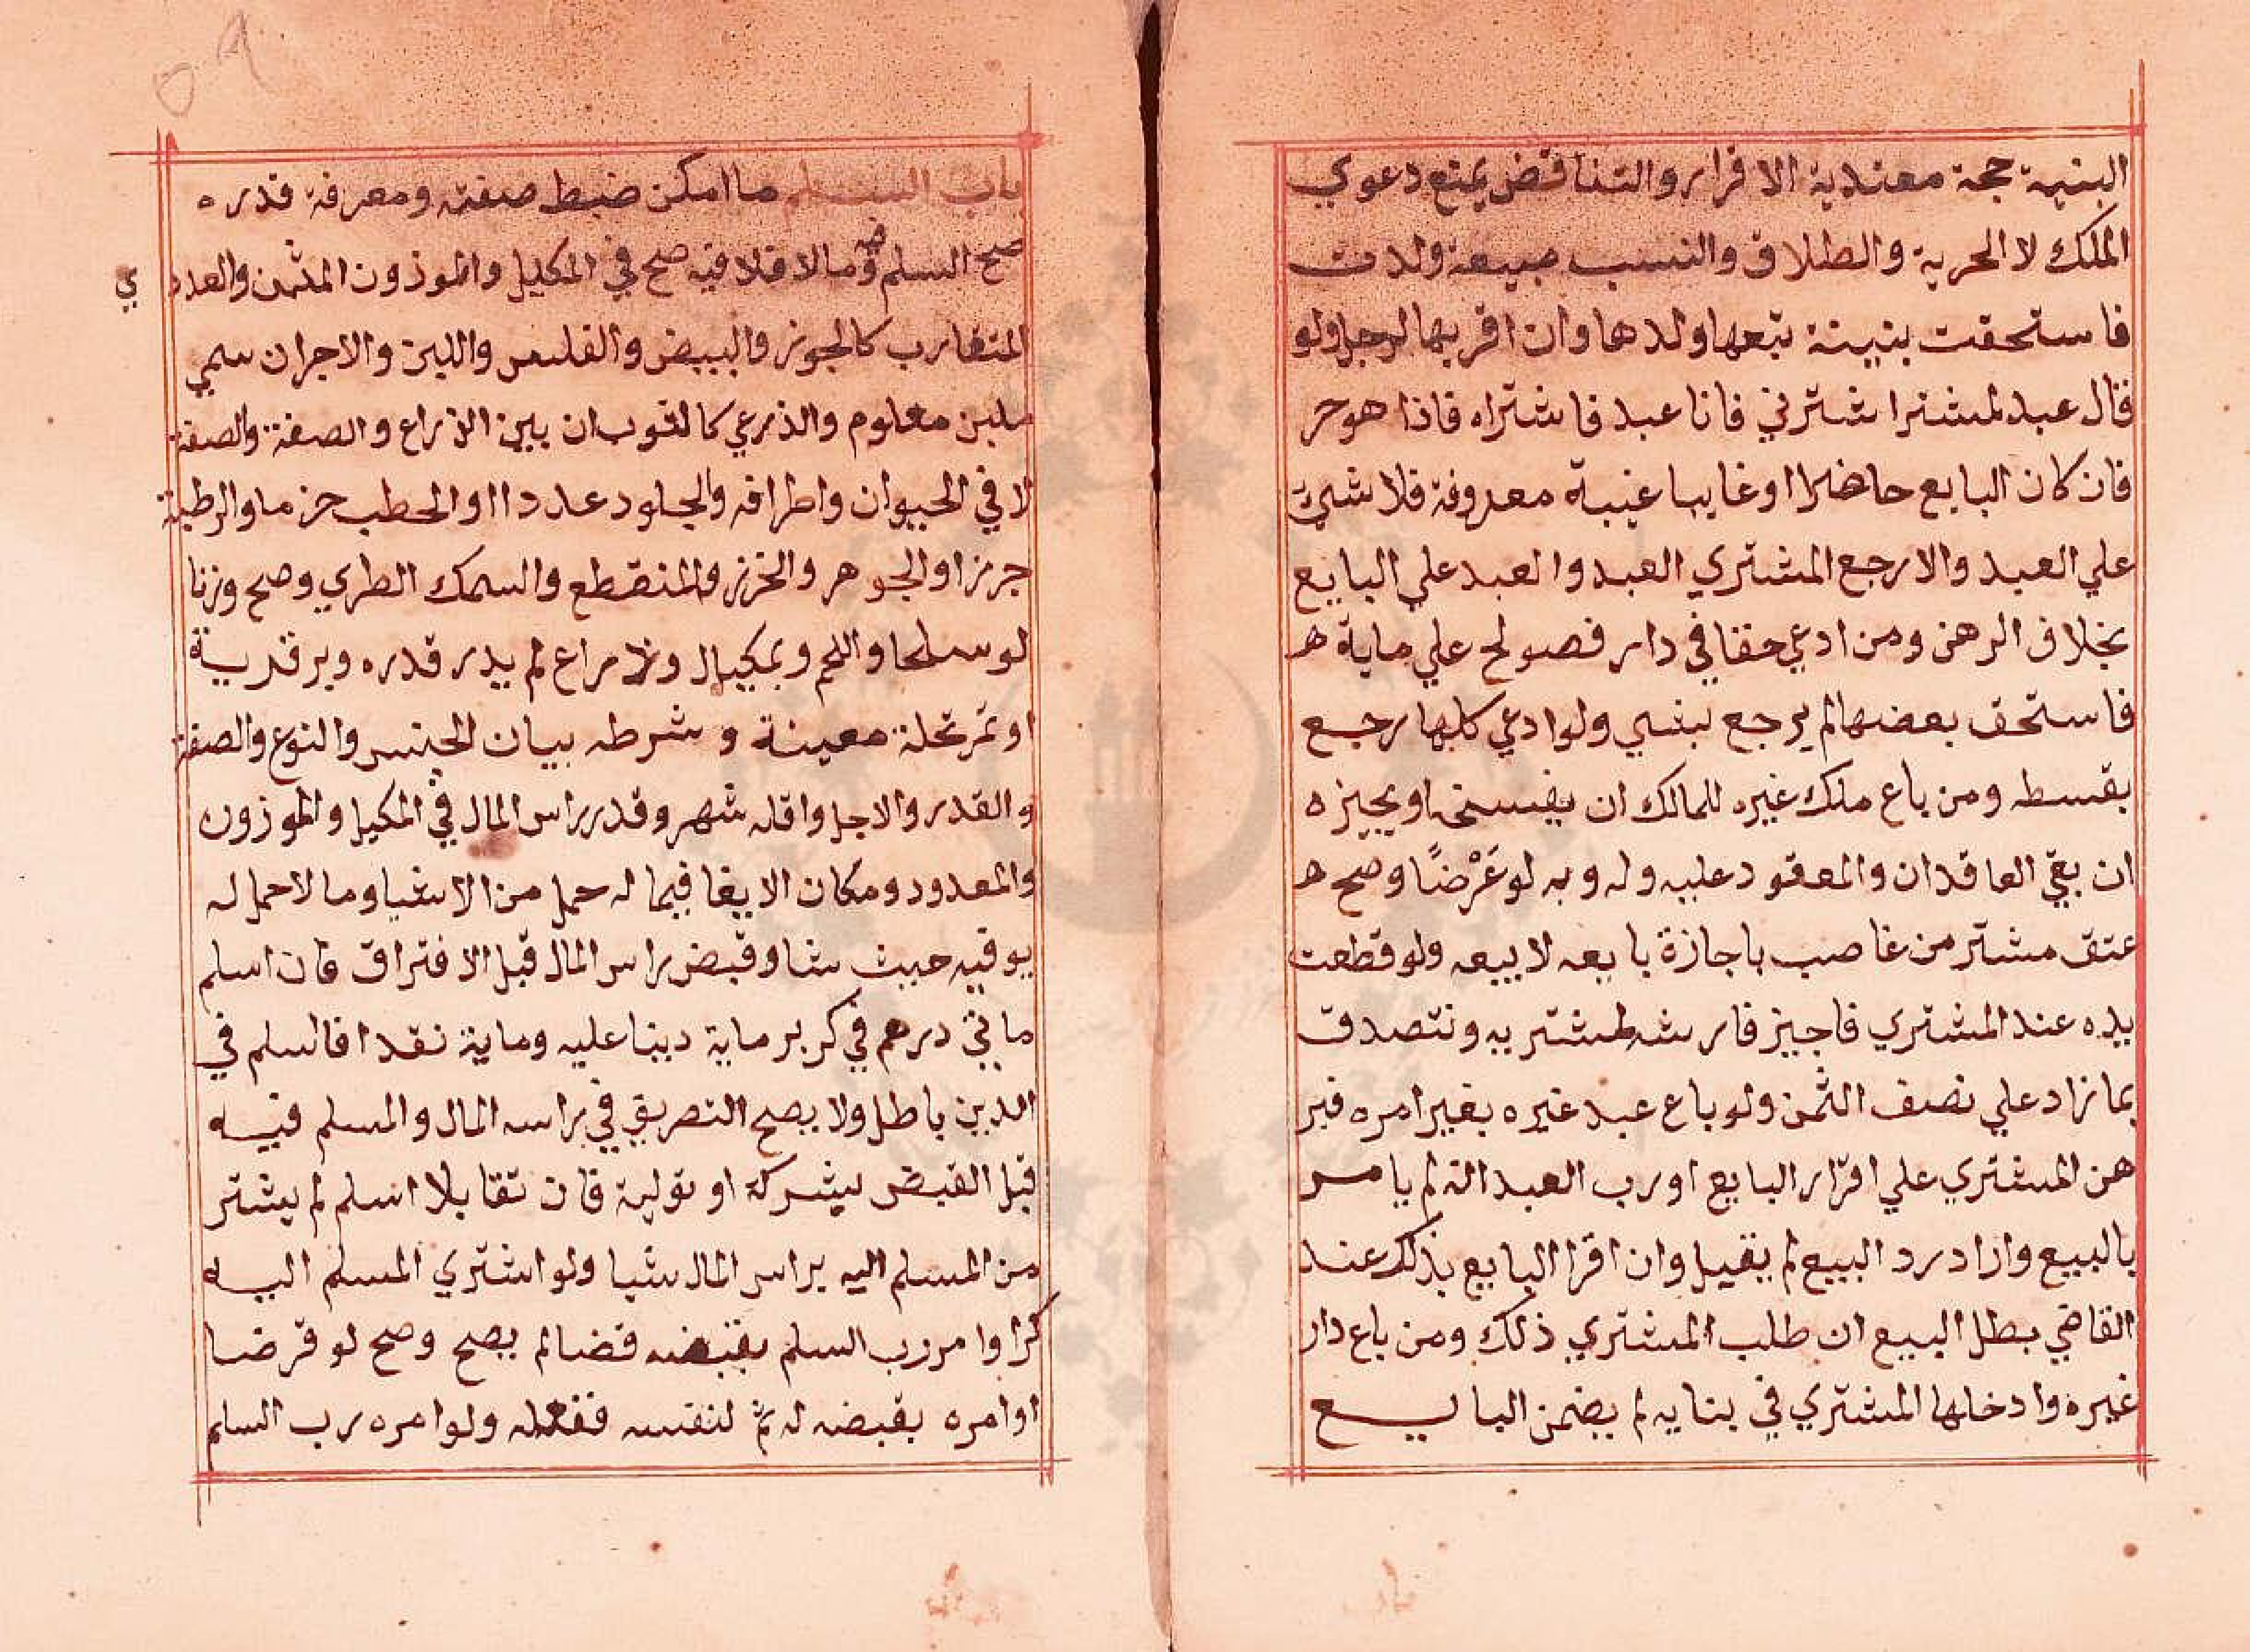 البنيه حجة معتدية الاقرار والتناقض يمنع دعوي
الملك لا الحرية والطلاق والنسب مبيعة ولدت
فاستحقت ببينة تبعها ولدها وان اقر بها لرجل ولو
قال عبد لمشترا شترني فانا عبد فاشتراه فاذا هو حر
فان كان البايع حاضرا او غايبا غيبة معروفة فلا شي
علي العبد والا رجع المشتري العبد والعبد علي البايع
بخلاف الرهن ومن ادعي حقا في دار فصولح علي ماية ه
فاستحق بعضها لم يرجع بشي ولو ادعي كلها رجع
بقسطه ومن باع ملك غيره للمالك ان يفسخه او يجيزه
ان بقي العاقدان والمعقود عليه وله وبه لو عَرْضًا وصح ه
عتق مشتر من غاصب باجازة بايعه لا بيعه ولو قطعت
يده عند المشتري فاجيز فارشه لمشتريه ونتصدق
بما زاد علي نصف الثمن ولو باع عبد غيره بغير امره فبر
هن المشتري علي اقرار البايع او رب العبد انه لم يامر
بالبيع وارا درد البيع لم يقبل وان اقرا البايع بذلك عند
القاضي بطل البيع ان طلب المشتري ذلك ومن باع دار
غيره وادخلها المشتري في بنايه لم يضمن البايع
٥٩
باب السلم ما امكن ضبط صفته ومعرفة قدره
صح السلم فيه وما لا فلا فيه صح في المكيل والموزون المثمن والعدد
ي
المتقارب كالجوز والبيض والفلس واللبن والاجران سمي
ملبن معلوم والذرعي كالثوب ان بين الذراع والصفة والصفة
لا في الحيوان واطرافه والجلود عددا او الحطب حزما والرطبة
جرزا والجوهر والخرز والمنقطع والسمك الطري وصح وزنا
لو سلحا واللحم وبمكيال وذراع لم يدر قدره وبر قدرية
او تمر نخلة معينة و شرطه بيان الجنس والنوع والصفة
والقدر والاجل واقله شهر وقدر راس المال في المكيل والموزون
والمعدود ومكان الايفا فيما له حمل من الاشيا وما لا حمل له
يوفيه حيث شا وقبض راس المال قبل الافتراق فان اسلم
مايتي درهم في كر بر ماية دينا عليه وماية نقدا فالسلم في
الدين باطل ولا يصح التصريف في راس المال والمسلم فيه
قبل القبض بشركة او تولية فان تقايلا السلم لم يشتر
من المسلم اليه براس المال شيا ولو اشتري المسلم اليه
كرا وا مر رب السلم بقبضه قضا لم يصح وصح لو قرضا
او امره بقبضه له ثم لنفسه ففعله ولو امره رب السلم